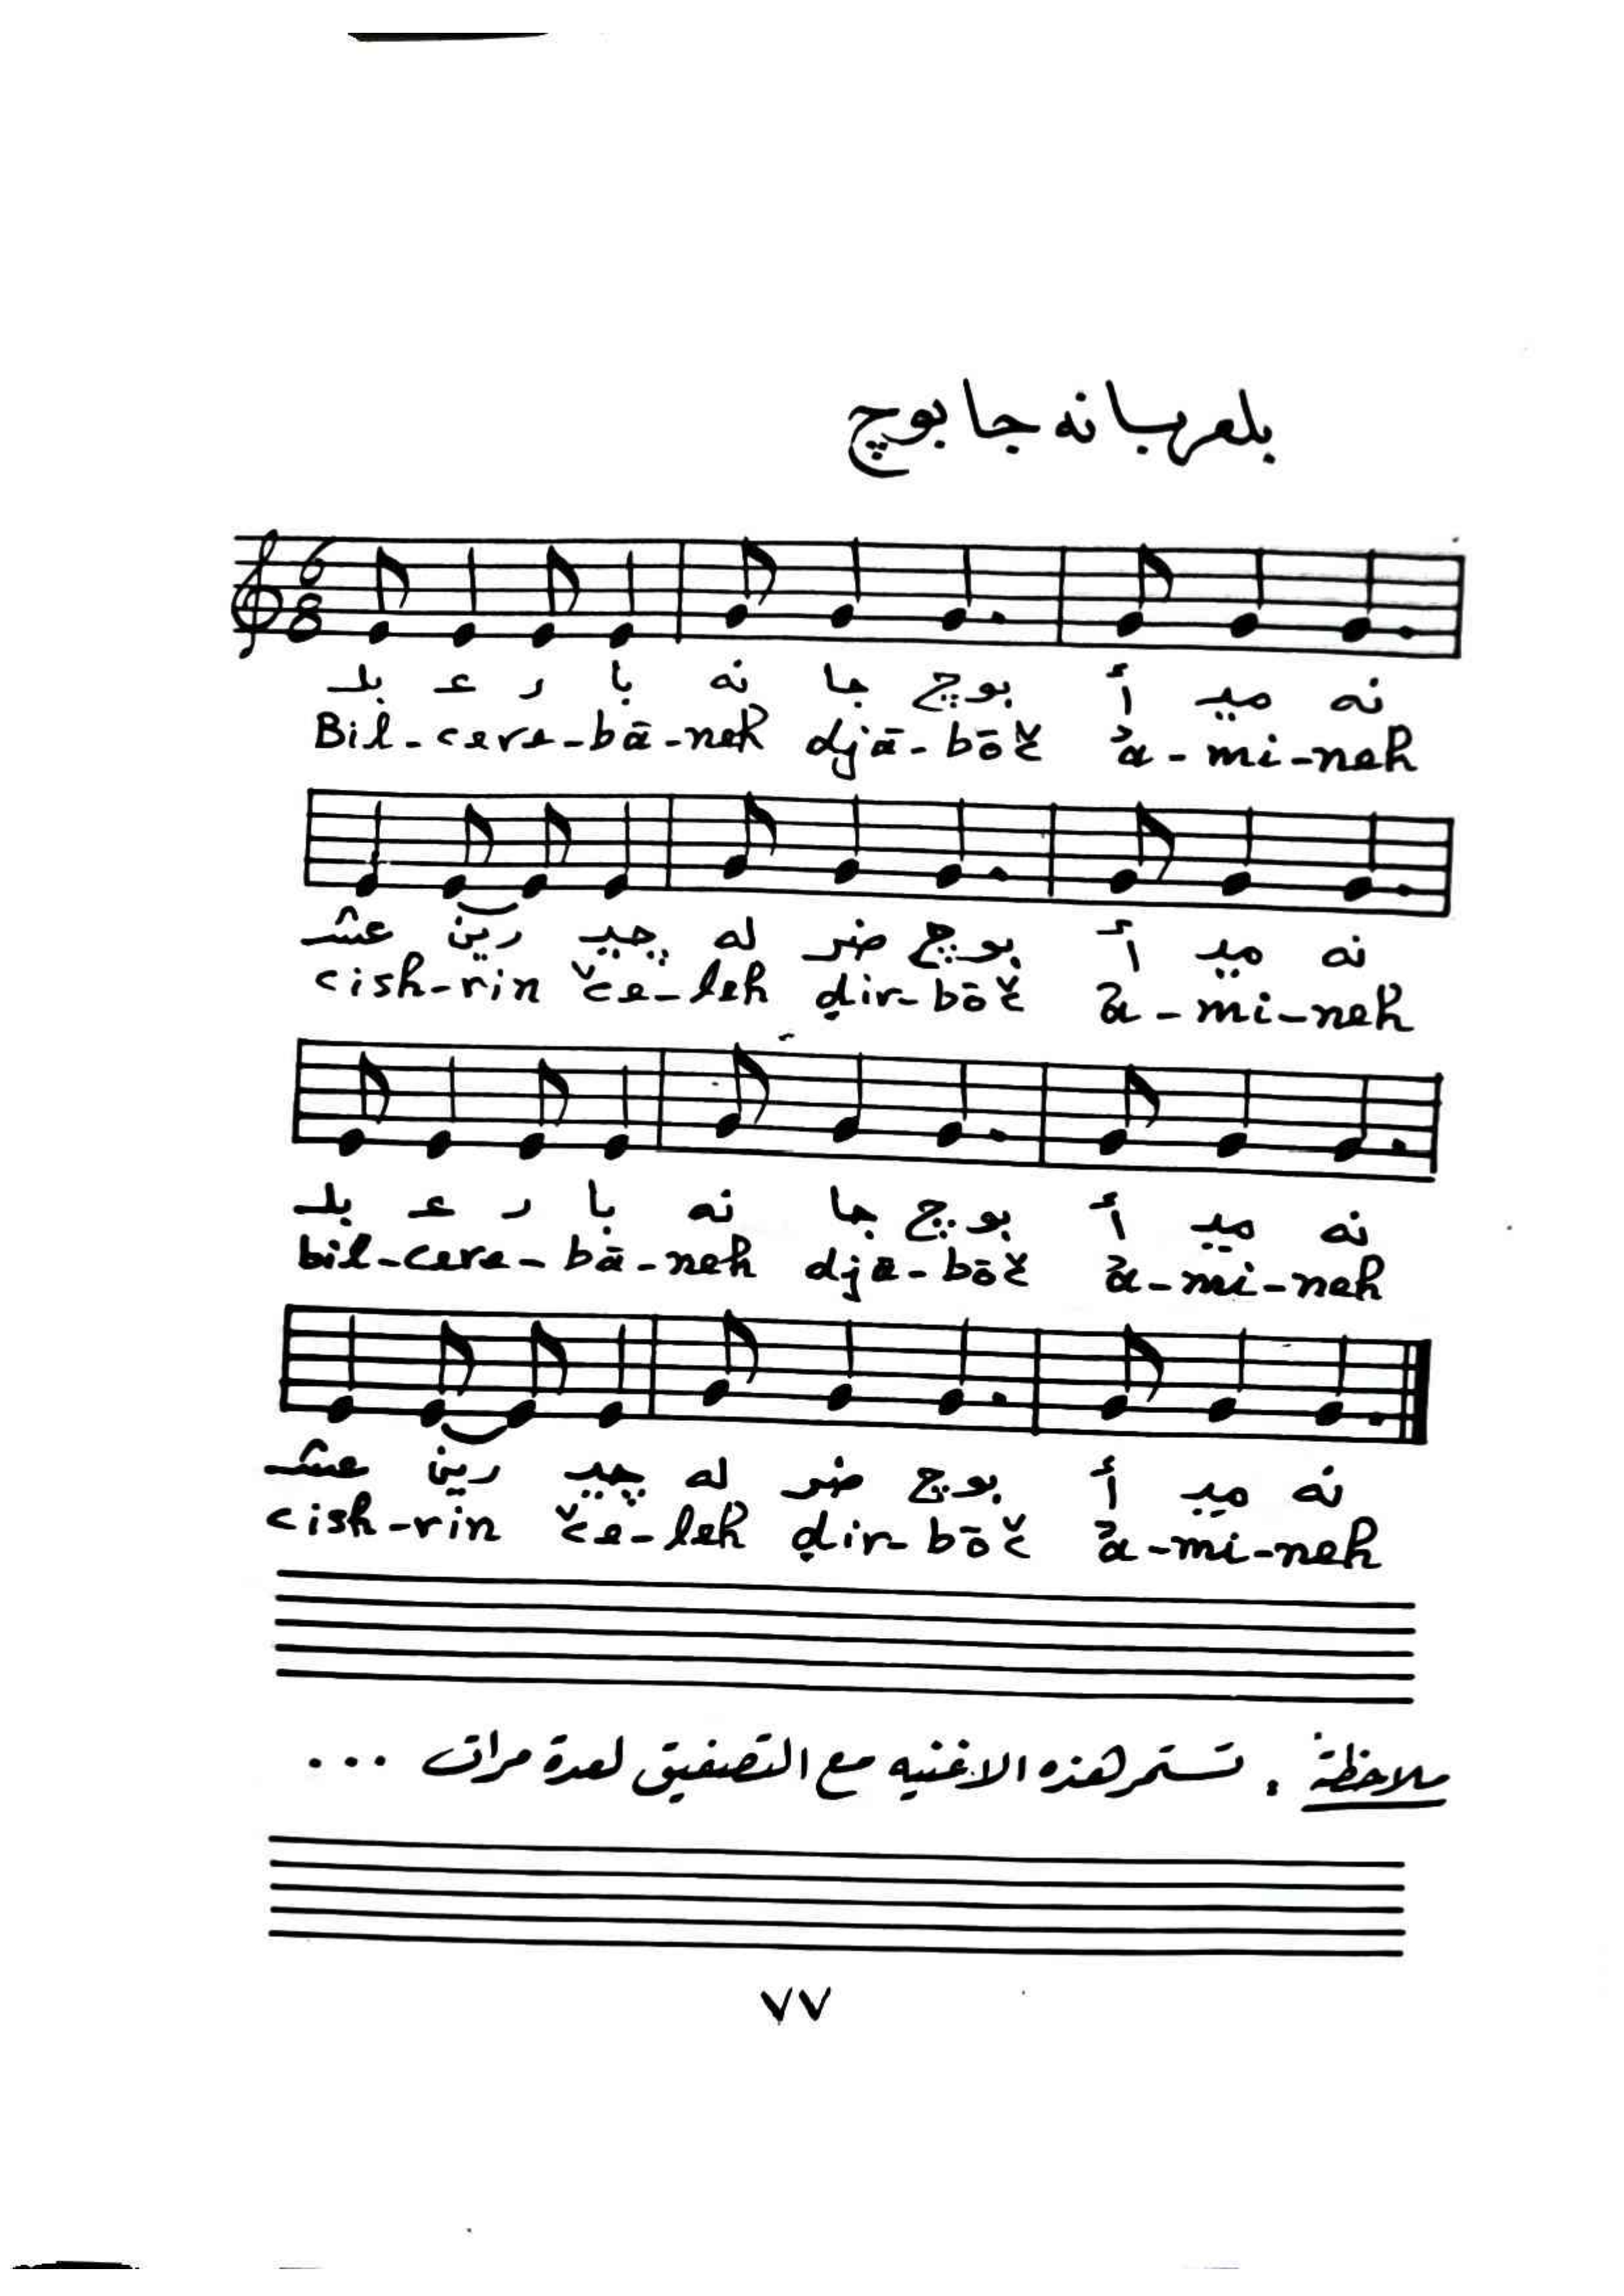 بلعربانه جابوچ
6
8
بلـ عـ ر با نه جا بوچ أ ميـ نه
Bil-cere-bā-neh djā-bōč ả-mi-neh
عشـ رين چيـ له ضر بوچ أ ميـ نه
cish-rin če-leh ḍir-bōč ả-mi-neh
بلـ عـ ر با نه جا بوچ أ ميـ نه
bil-cere-bā-neh djā-bōč ả-mi-neh
عشـ رين چيـ له ضر بوچ أ ميـ نه
cish-rin če-leh ḍir-bōč ả-mi-neh
ملاحظة . تستمر هذه الاغنيه مع التصفيق لعدة مرات ...
٧٧